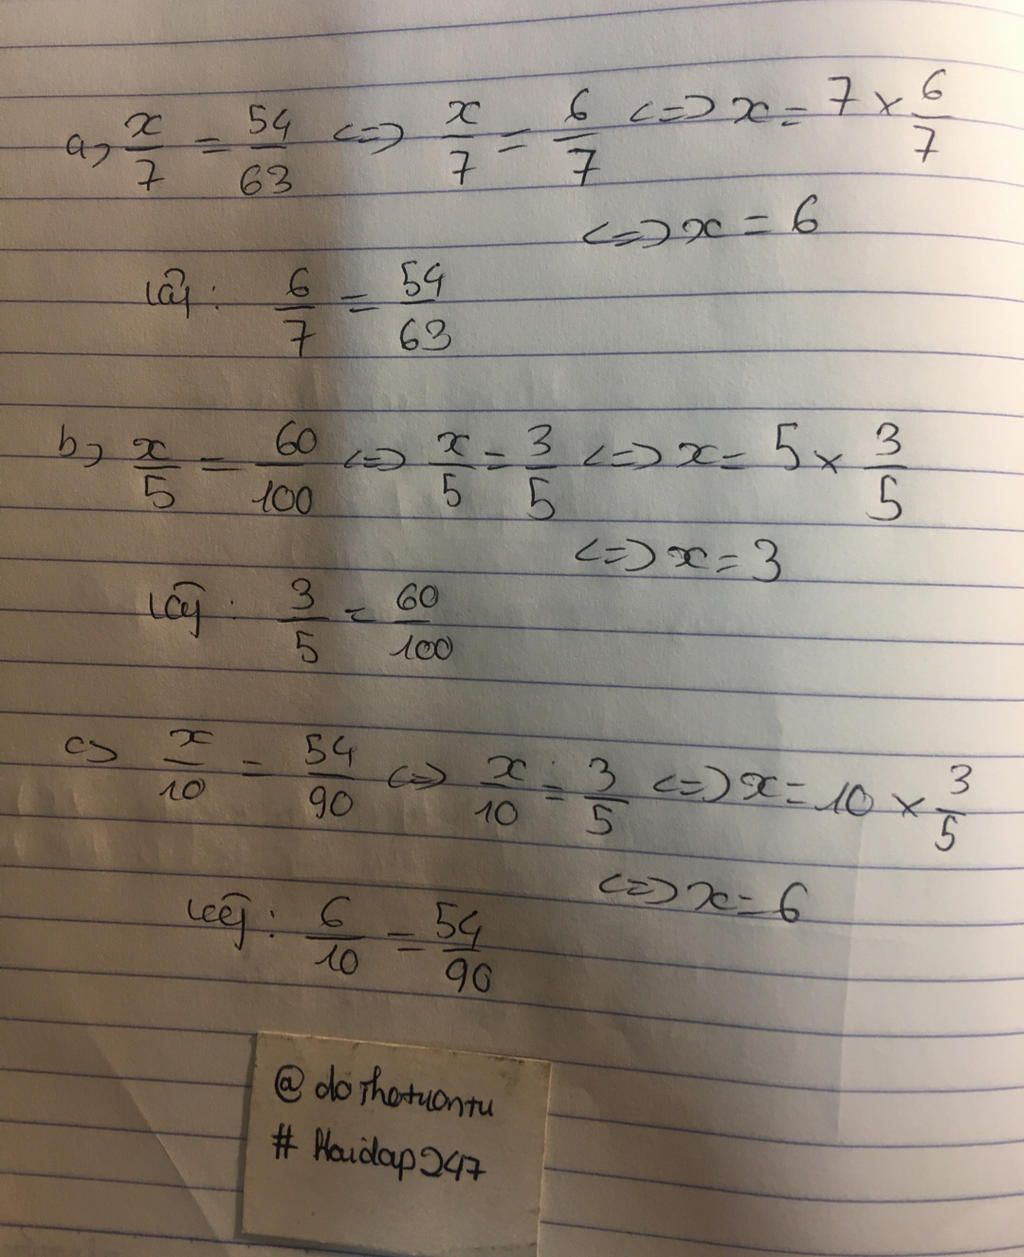 a, x/7 = 54/63 <=> x/7 = 6/7 <=> x = 7 × 6/7
<=> x = 6
: 6/7 = 54/63
b, x/5 = 60/100 <=> x/5 = 3/5 <=> x = 5 × 3/5
<=> x = 3
: 3/5 = 60/100
c, x/10 = 54/90 <=> x/10 = 3/5 <=> x = 10 × 3/5
<=> x = 6
: 6/10 = 54/90
@dothetuantu
# Hoidap247